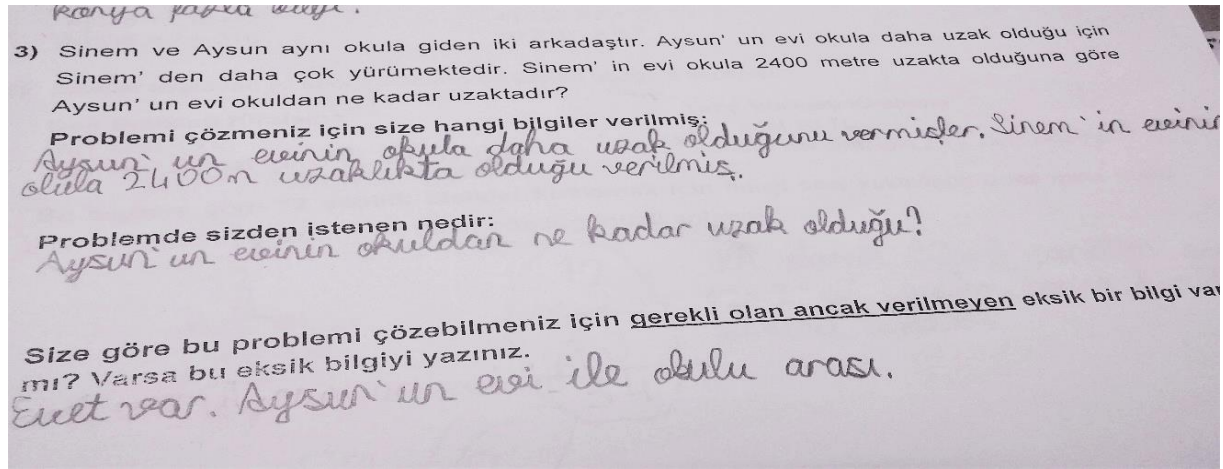 Konya fazla bilgi.
3) Sinem ve Aysun aynı okula giden iki arkadaştır. Aysun' un evi okula daha uzak olduğu için
Sinem' den daha çok yürümektedir. Sinem' in evi okula 2400 metre uzakta olduğuna göre
Aysun' un evi okuldan ne kadar uzaktadır?
Problemi çözmeniz için size hangi bilgiler verilmiş:
Aysun' un evinin okula daha uzak olduğunu vermişler. Sinem' in evinin
okula 2400m uzaklıkta olduğu verilmiş.
Problemde sizden istenen nedir:
Aysun' un evinin okuldan ne kadar uzak olduğu?
Size göre bu problemi çözebilmeniz için gerekli olan ancak verilmeyen eksik bir bilgi var
mı? Varsa bu eksik bilgiyi yazınız.
Evet var. Aysun' un evi ile okulu arası.